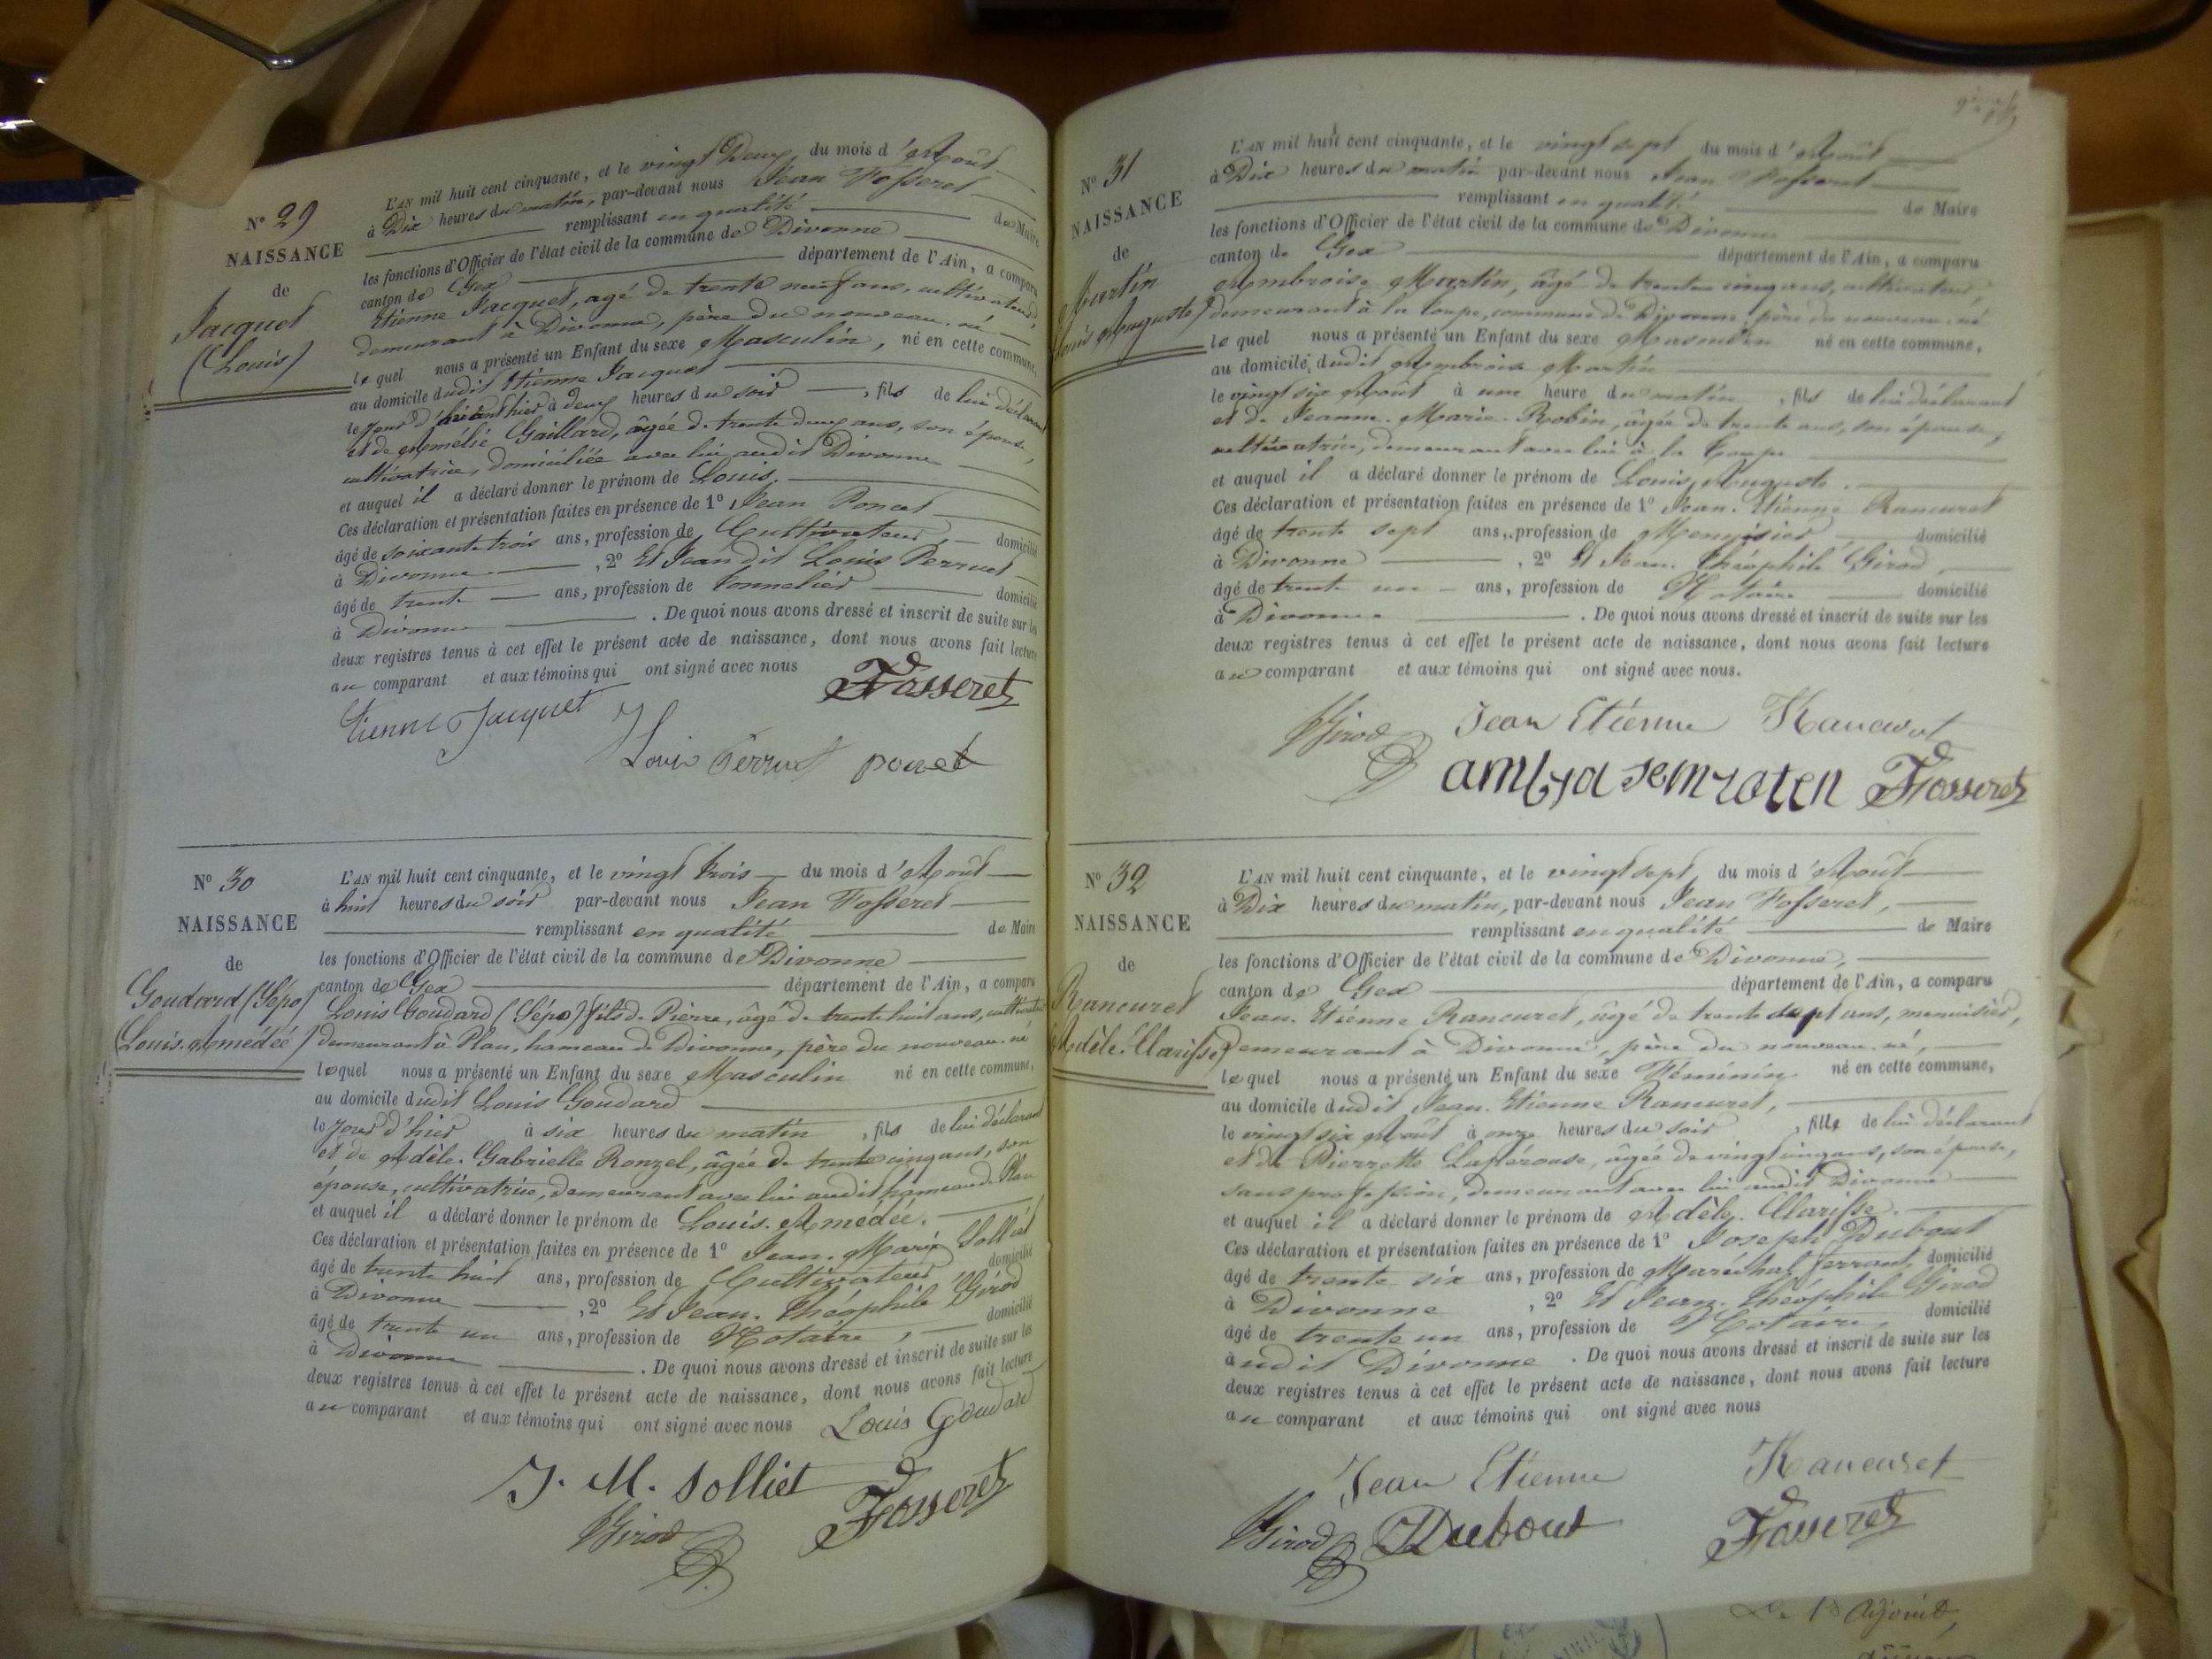 N° 29
NAISSANCE
de
Jacquet
(Louis)
L'AN mil huit cent cinquante, et le vingt Deux du mois d'Août
à Dix heures du matin, par-devant nous Jean Fosseret
remplissant en qualité de Maire
les fonctions d'Officier de l'état civil de la commune de Divonne
canton de Gex département de l'Ain, a comparu
Etienne Jacquet, agé de trente neuf ans, cultivateur,
demeurant à Divonne, père du nouveau-né
lequel nous a présenté un Enfant du sexe Masculin, né en cette commune,
au domicile dudit Etienne Jacquet
le jour d'avant hier à deux heures du soir, fils de lui déclarant
et de Amélie Gaillard, âgée de trente deux ans, son épouse,
cultivatrice, domiciliée avec lui audit Divonne
et auquel il a déclaré donner le prénom de Louis.
Ces déclaration et présentation faites en présence de 1° Jean Poncet
âgé de soixante trois ans, profession de Cultivateur, domicilié
à Divonne, 2° Et Jean dit Louis Perruet
âgé de trente ans, profession de Tonnelier domicilié
à Divonne. De quoi nous avons dressé et inscrit de suite sur les
deux registres tenus à cet effet le présent acte de naissance, dont nous avons fait lecture
au comparant et aux témoins qui ont signé avec nous
Fosseret
Etienne Jacquet
Louis Perruet poncet
N° 30
NAISSANCE
de
Goudard (Sépo)
(Louis-Amédée)
L'AN mil huit cent cinquante, et le vingt trois du mois d'Août
à huit heures du soir par-devant nous Jean Fosseret
remplissant en qualité de Maire
les fonctions d'Officier de l'état civil de la commune de Divonne
canton de Gex département de l'Ain, a comparu
Louis Goudard (Sépo) fils de Pierre, âgé de trente huit ans, cultivateur
demeurant à Plan, hameau de Divonne, père du nouveau-né
lequel nous a présenté un Enfant du sexe Masculin né en cette commune,
au domicile dudit Louis Goudard
le jour d'hier à six heures du matin, fils de lui déclarant
et de Adèle-Gabrielle Ronzel, âgée de trente cinq ans, son
épouse, cultivatrice, demeurant avec lui audit hameau de Plan
et auquel il a déclaré donner le prénom de Louis-Amédée.
Ces déclaration et présentation faites en présence de 1° Jean-Marie Solliet
âgé de trente huit ans, profession de Cultivateur domicilié
à Divonne, 2° Et Jean-Théophile Girod
âgé de trente un ans, profession de Notaire, domicilié
à Divonne. De quoi nous avons dressé et inscrit de suite sur les
deux registres tenus à cet effet le présent acte de naissance, dont nous avons fait lecture
au comparant et aux témoins qui ont signé avec nous
Louis Goudard
J. M. Solliet
Girod Fosseret
N° 31
NAISSANCE
de
Martin
(Louis Auguste)
L'AN mil huit cent cinquante, et le vingt sept du mois d'Août
à Dix heures du matin par-devant nous Jean Fosseret
remplissant en qualité de Maire
les fonctions d'Officier de l'état civil de la commune de Divonne
canton de Gex département de l'Ain, a comparu
Ambroise Martin, âgé de trente cinq ans, cultivateur,
demeurant à la Coupe, commune de Divonne, père du nouveau-né
lequel nous a présenté un Enfant du sexe Masculin né en cette commune,
au domicile dudit Ambroise Martin
le vingt six Août à une heure du matin, fils de lui déclarant
et de Jeanne-Marie Robin, âgée de trente ans, son épouse,
cultivatrice, demeurant avec lui à la Coupe
et auquel il a déclaré donner le prénom de Louis Auguste.
Ces déclaration et présentation faites en présence de 1° Jean-Etienne Rancuret
âgé de trente sept ans, profession de Menuisier domicilié
à Divonne, 2° Et Jean-Théophile Girod,
âgé de trente un ans, profession de Notaire domicilié
à Divonne. De quoi nous avons dressé et inscrit de suite sur les
deux registres tenus à cet effet le présent acte de naissance, dont nous avons fait lecture
au comparant et aux témoins qui ont signé avec nous.
Girod Jean Etienne Rancuret
Fosseret
N° 32
NAISSANCE
de
Rancuret
(Adèle-Clarisse)
L'AN mil huit cent cinquante, et le vingt sept, du mois d'Août
à Dix heures du matin, par-devant nous Jean Fosseret,
remplissant en qualité de Maire
les fonctions d'Officier de l'état civil de la commune de Divonne,
canton de Gex département de l'Ain, a comparu
Jean-Etienne Rancuret, âgé de trente sept ans, menuisier,
Demeurant à Divonne, père du nouveau-né,
lequel nous a présenté un Enfant du sexe Féminin né en cette commune,
au domicile dudit Jean-Etienne Rancuret,
le vingt six Août à onze heures du soir, fille de lui déclarant
et de Pierrette Lapérouse, âgée de vingt cinq ans, son épouse,
sans profession, demeurant avec lui audit Divonne
et auquel il a déclaré donner le prénom de Adèle-Clarisse.
Ces déclaration et présentation faites en présence de 1° Joseph Dubout
âgé de trente six ans, profession de Maréchal ferrant, domicilié
à Divonne, 2° Et Jean-Théophile Girod
âgé de trente un ans, profession de Notaire, domicilié
audit Divonne. De quoi nous avons dressé et inscrit de suite sur les
deux registres tenus à cet effet le présent acte de naissance, dont nous avons fait lecture
au comparant et aux témoins qui ont signé avec nous
Jean Etienne Rancuret
Girod Dubout Fosseret
Le 1er Adjoint,